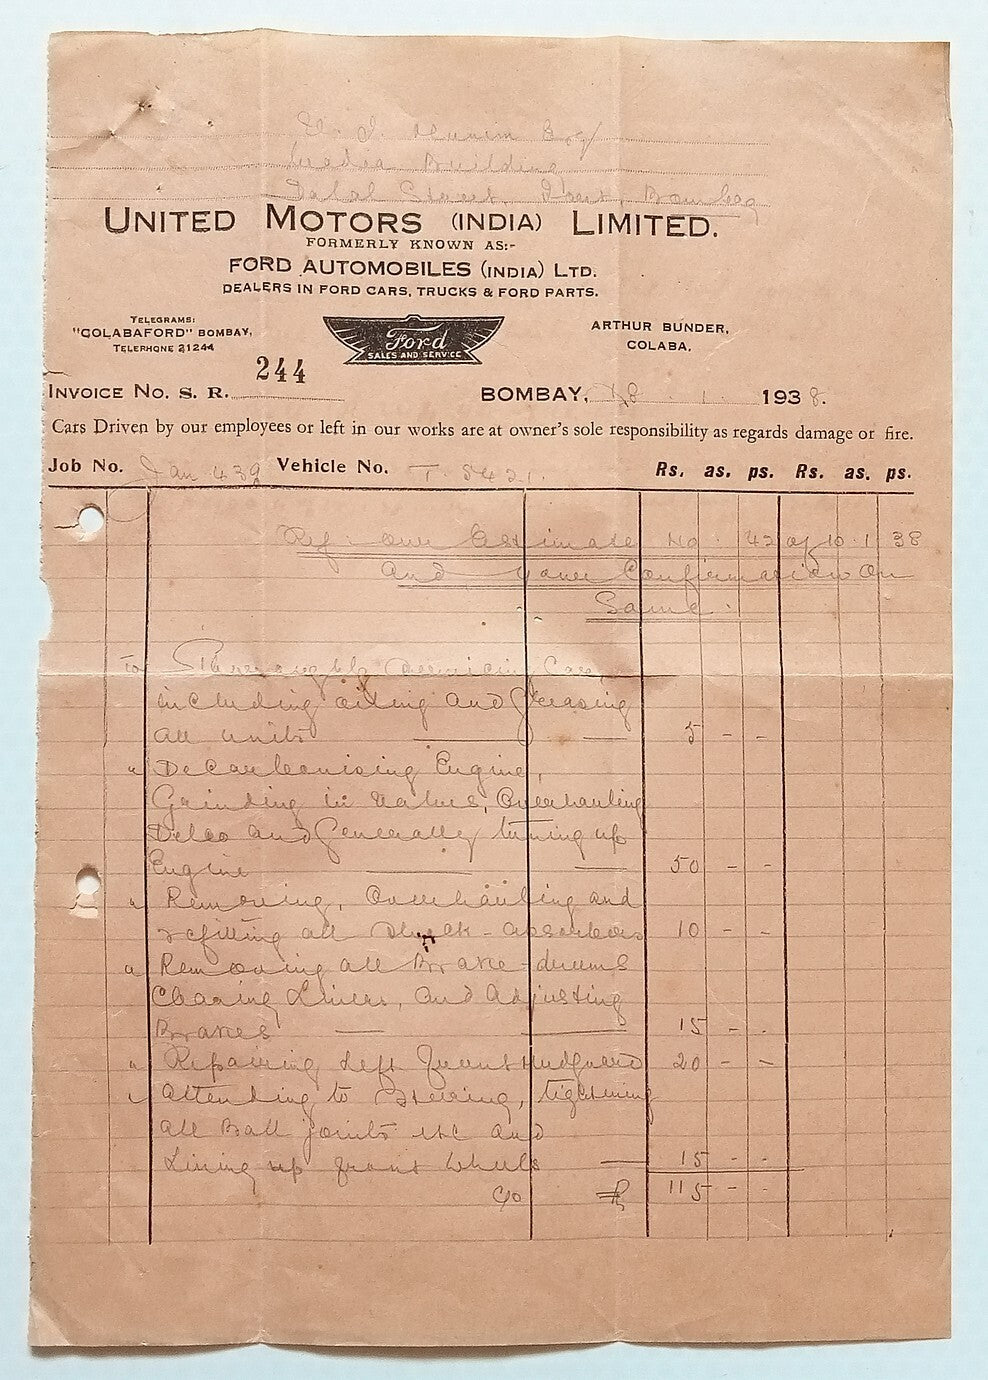 Munim Esq/
Building
Dalal Street, Fort, Bombay
UNITED MOTORS (INDIA) LIMITED.
FORMERLY KNOWN AS:-
FORD AUTOMOBILES (INDIA) LTD.
DEALERS IN FORD CARS, TRUCKS & FORD PARTS.
TELEGRAMS:
"COLABAFORD" BOMBAY,
TELEPHONE 21244
Ford
SALES AND SERVICE
ARTHUR BUNDER,
COLABA.
INVOICE No. S. R. 244
BOMBAY, 18. 1. 1938.
Cars Driven by our employees or left in our works are at owner's sole responsibility as regards damage or fire.
Job No. Jan 439 Vehicle No. T. 5421. Rs. as. ps. Rs. as. ps.
Ref. our Estimate No. 42 of 10.1.38
and your Confirmation on
Same.
To Servicing Car
including oiling and Greasing
all units 5 - -
" DeCarbonising Engine,
Grinding in Valves, Overhauling
Delco and Generally tuning up
Engine 50 - -
" Removing, Overhauling and
refitting all Shock-absorbers 10 - -
" Removing all Brake-drums
Cleaning Liners, and Adjusting
Brakes 15 - -
" Repairing Left Front Mudguard 20 - -
" Attending to Steering, tightening
all Ball joints etc and
Lining up front Wheels 15 - -
C/o R 115 - -